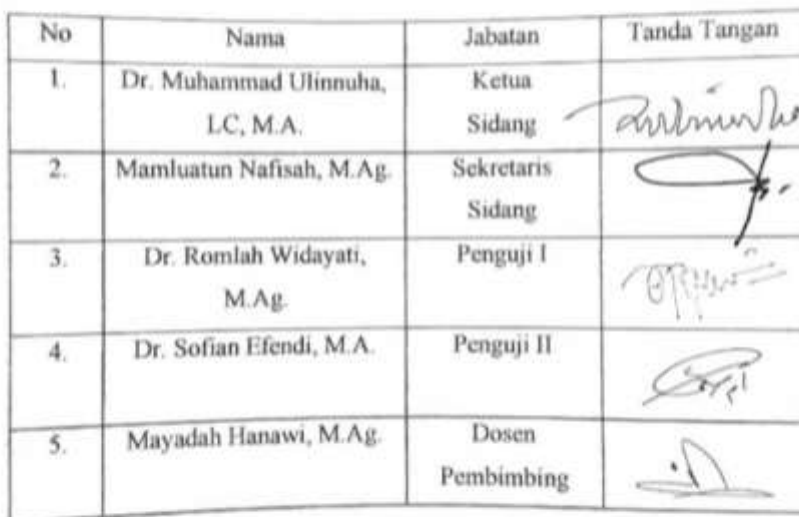 No Nama Jabatan Tanda Tangan
1. Dr. Muhammad Ulinnuha, Ketua
LC, M.A. Sidang
2. Mamluatun Nafisah, M.Ag. Sekretaris
Sidang
3. Dr. Romlah Widayati, Penguji I
M.Ag.
4. Dr. Sofian Efendi, M.A. Penguji II
5. Mayadah Hanawi, M.Ag. Dosen
Pembimbing